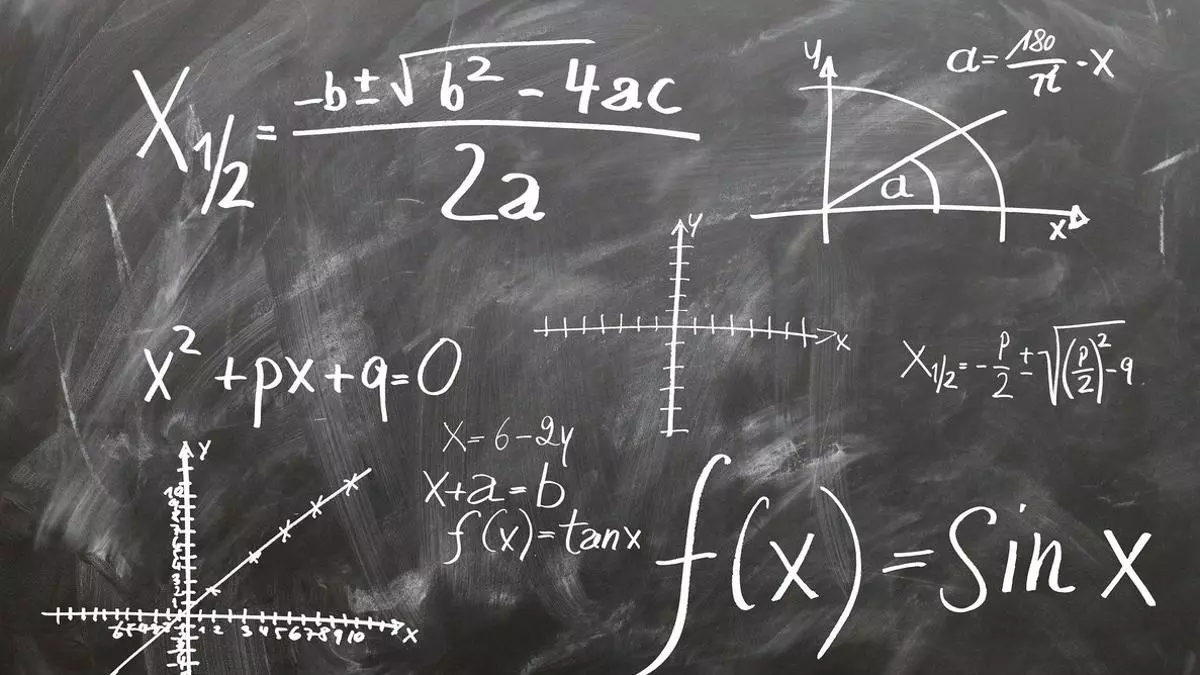 X₁/₂ = (-b ± √(b² - 4ac)) / 2a
y
a = 180/π - X
a
x
y
x
x² + px + q = 0
X₁/₂ = - p/2 ± √((p/2)² - q)
X = 6 - 2y
X + a = b
f(x) = tan x
f(x) = Sin x
y
10
1 2 3 4 5 6 7 8 9 10
x